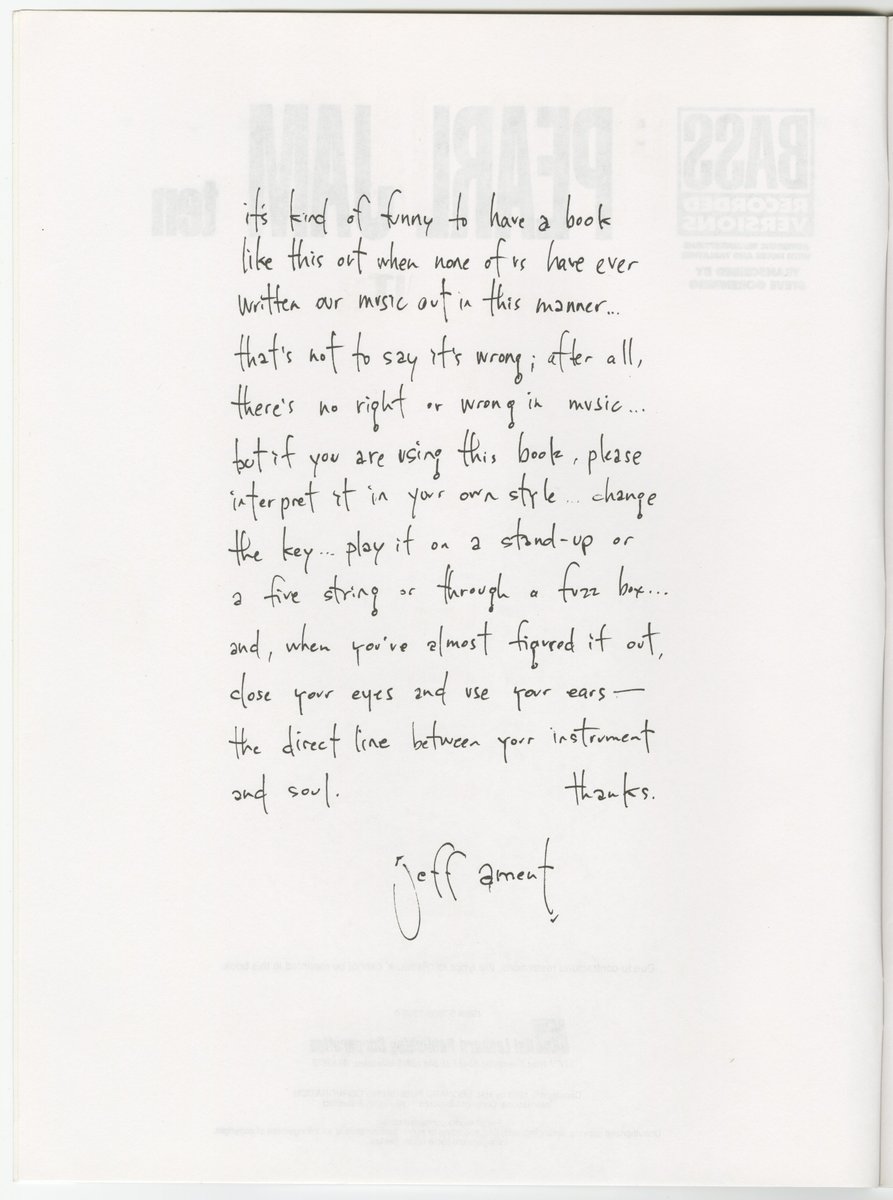 it's kind of funny to have a book
like this out when none of us have ever
written our music out in this manner...
that's not to say it's wrong; after all,
there's no right or wrong in music...
but if you are using this book, please
interpret it in your own style... change
the key... play it on a stand-up or
a five string or through a fuzz box...
and, when you've almost figured it out,
close your eyes and use your ears —
the direct line between your instrument
and soul. thanks.
jeff ament
PEARL JAM ten
BASS
RECORDED
VERSIONS